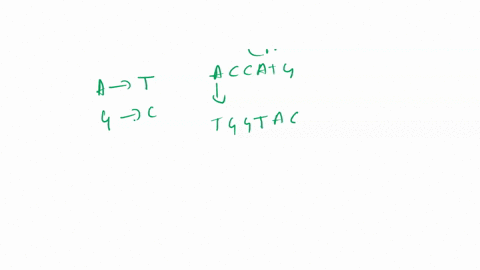 A → T
G → C
ACCATG
↓
TGGTAC